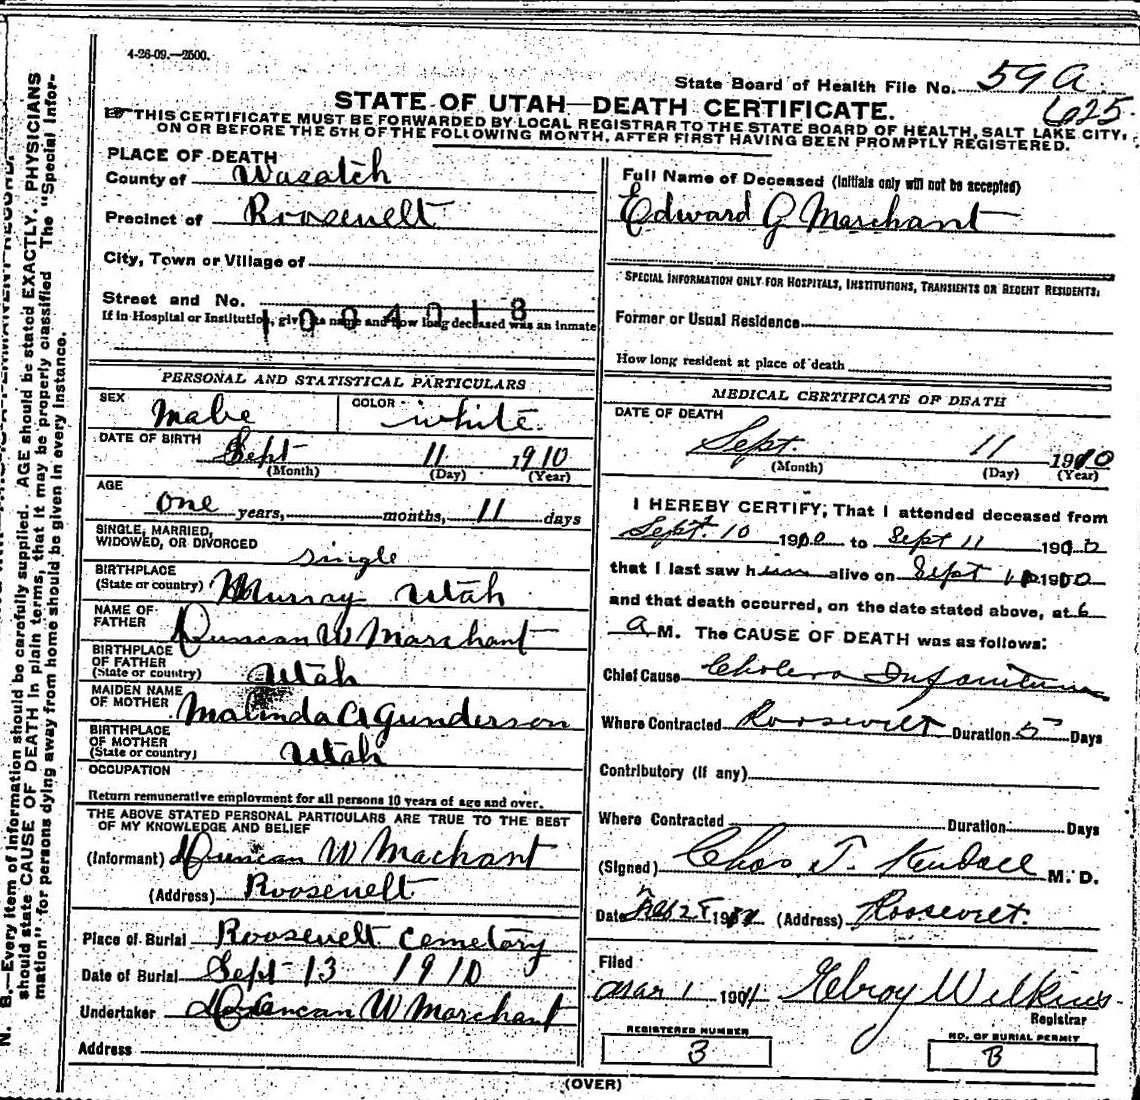 4-26-09.—2500.
State Board of Health File No. 59 a
625
STATE OF UTAH—DEATH CERTIFICATE.
THIS CERTIFICATE MUST BE FORWARDED BY LOCAL REGISTRAR TO THE STATE BOARD OF HEALTH, SALT LAKE CITY,
ON OR BEFORE THE 5TH OF THE FOLLOWING MONTH, AFTER FIRST HAVING BEEN PROMPTLY REGISTERED.
PLACE OF DEATH
County of Wasatch
Precinct of Roosevelt
City, Town or Village of
Street and No.
If in Hospital or Institution, give its name and how long deceased was an inmate
1094018
PERSONAL AND STATISTICAL PARTICULARS
SEX Male COLOR white.
DATE OF BIRTH Sept 11 1910
(Month) (Day) (Year)
AGE
one years, months, 11 days
SINGLE, MARRIED,
WIDOWED, OR DIVORCED single
BIRTHPLACE
(State or country) Murray Utah
NAME OF
FATHER Duncan W Marchant
BIRTHPLACE
OF FATHER
(State or country) Utah
MAIDEN NAME
OF MOTHER Malinda A Gunderson
BIRTHPLACE
OF MOTHER
(State or country) Utah
OCCUPATION
Return remunerative employment for all persons 10 years of age and over.
THE ABOVE STATED PERSONAL PARTICULARS ARE TRUE TO THE BEST
OF MY KNOWLEDGE AND BELIEF
(Informant) Duncan W Machant
(Address) Roosevelt
Place of Burial Roosevelt Cemetary
Date of Burial Sept 13 1910
Undertaker Duncan W Marchant
Address
Full Name of Deceased (Initials only will not be accepted)
Edward G Marchant
SPECIAL INFORMATION ONLY FOR HOSPITALS, INSTITUTIONS, TRANSIENTS OR RECENT RESIDENTS:
Former or Usual Residence
How long resident at place of death
MEDICAL CERTIFICATE OF DEATH
DATE OF DEATH
Sept. 11 1910
(Month) (Day) (Year)
I HEREBY CERTIFY, That I attended deceased from
Sept. 10 1910 to Sept 11 1910
that I last saw him alive on Sept 1910
and that death occurred, on the date stated above, at 6
a M. The CAUSE OF DEATH was as follows:
Chief Cause Cholera Infantum
Where Contracted Roosevelt Duration 5 Days
Contributory (If any)
Where Contracted Duration Days
(Signed) Chas T. Kendall M. D.
Date Feb 28 1911 (Address) Roosevelt.
Filed
Mar 1 1911 Elroy Wilkins
Registrar
REGISTERED NUMBER
3
NO. OF BURIAL PERMIT
B
(OVER)
N. B.—Every item of information should be carefully supplied. AGE should be stated EXACTLY. PHYSICIANS
should state CAUSE OF DEATH in plain terms, that it may be properly classified. The "Special Infor-
mation" for persons dying away from home should be given in every instance.